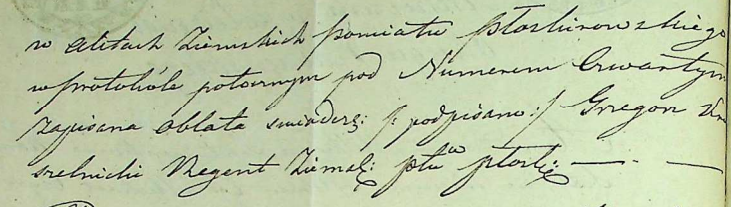 w Aktach Ziemskich powiatu płoskirowskiego
w protokóle potocznym pod Numerem Czwartym
zapisana oblata świadczę: /: podpisano :/ Grzegorz
Regent Ziemsk: płu płosk: — . —